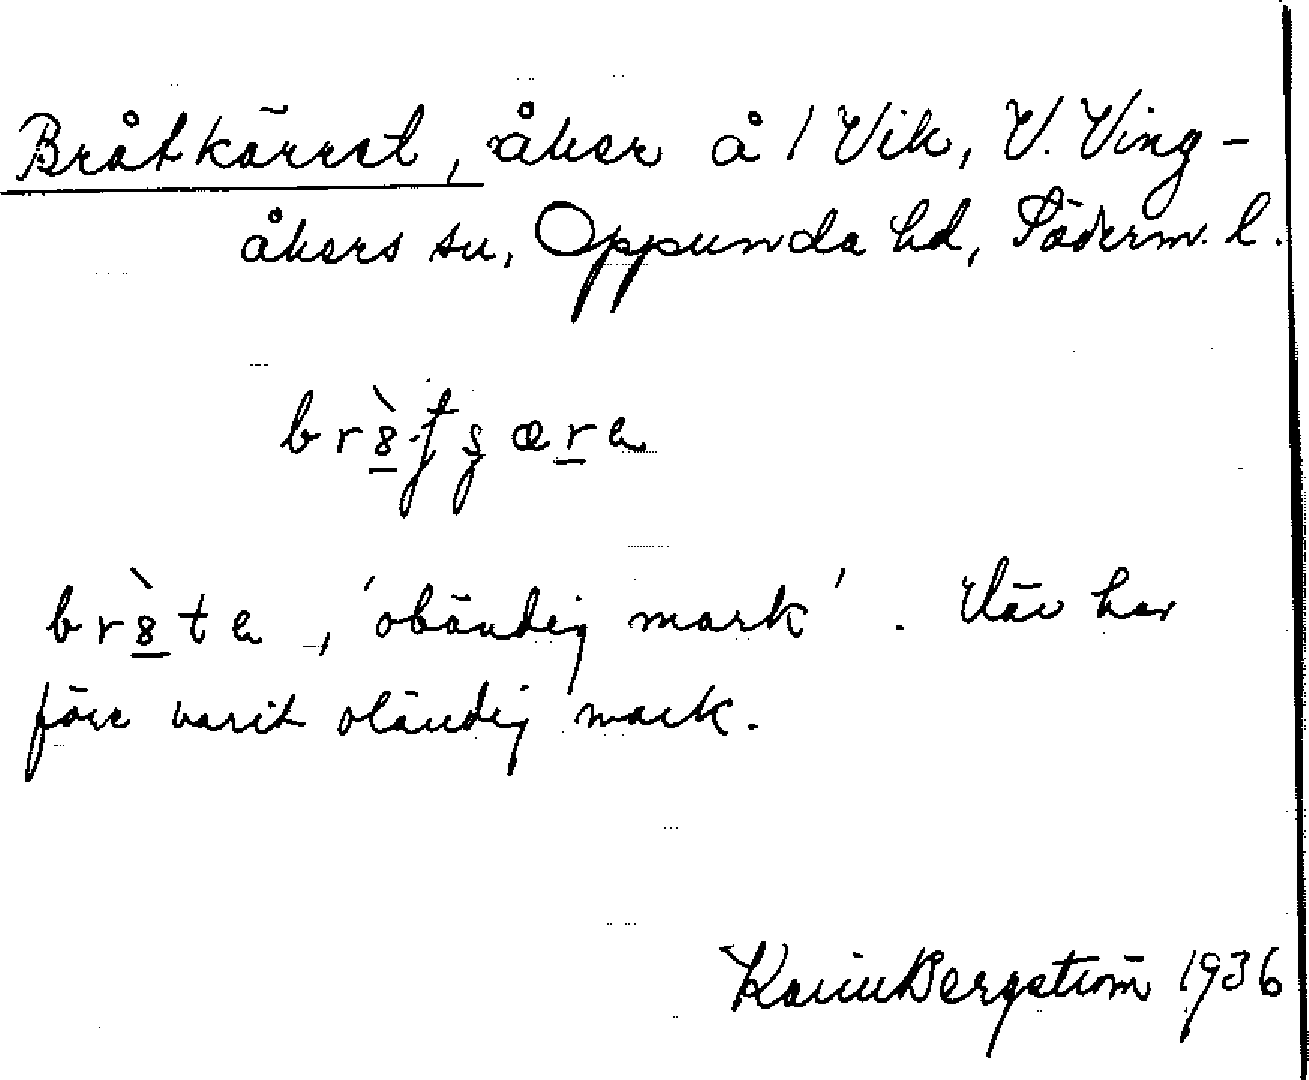 Bråtkärret, åker å 1 Vik, V. Ving-
åkers sn, Oppunda hd, Söderm. l.
bråta, 'obändig mark'. Här har
förr varit oländig mark.
Karin Bergström 1936